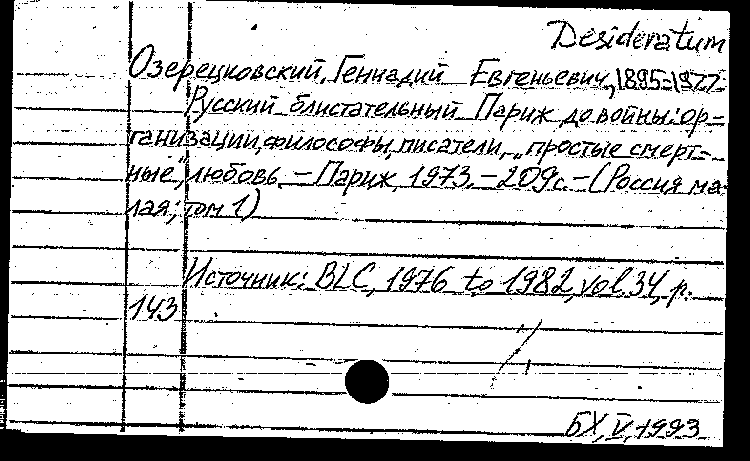 Desideratum
Озерецковский, Геннадий Евгеньевич, 1895-1977
Русский блистательный Париж до войны: ор-
ганизации, философы, писатели, „простые смерт-
ные", любовь. – Париж, 1973. – 209с. – (Россия ма-
лая; том 1)
Источник: BLC, 1976 to 1982, vol. 34, p.
143
БХ, V, 1993